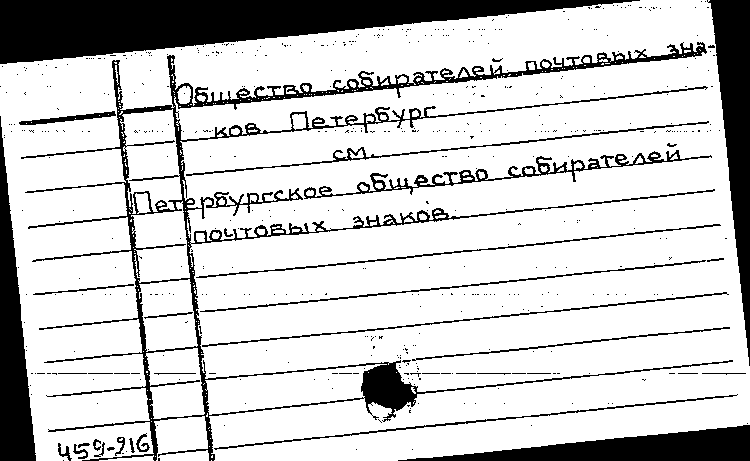 Общество собирателей почтовых зна-
ков. Петербург
см.
Петербургское общество собирателей
почтовых знаков.
459-916